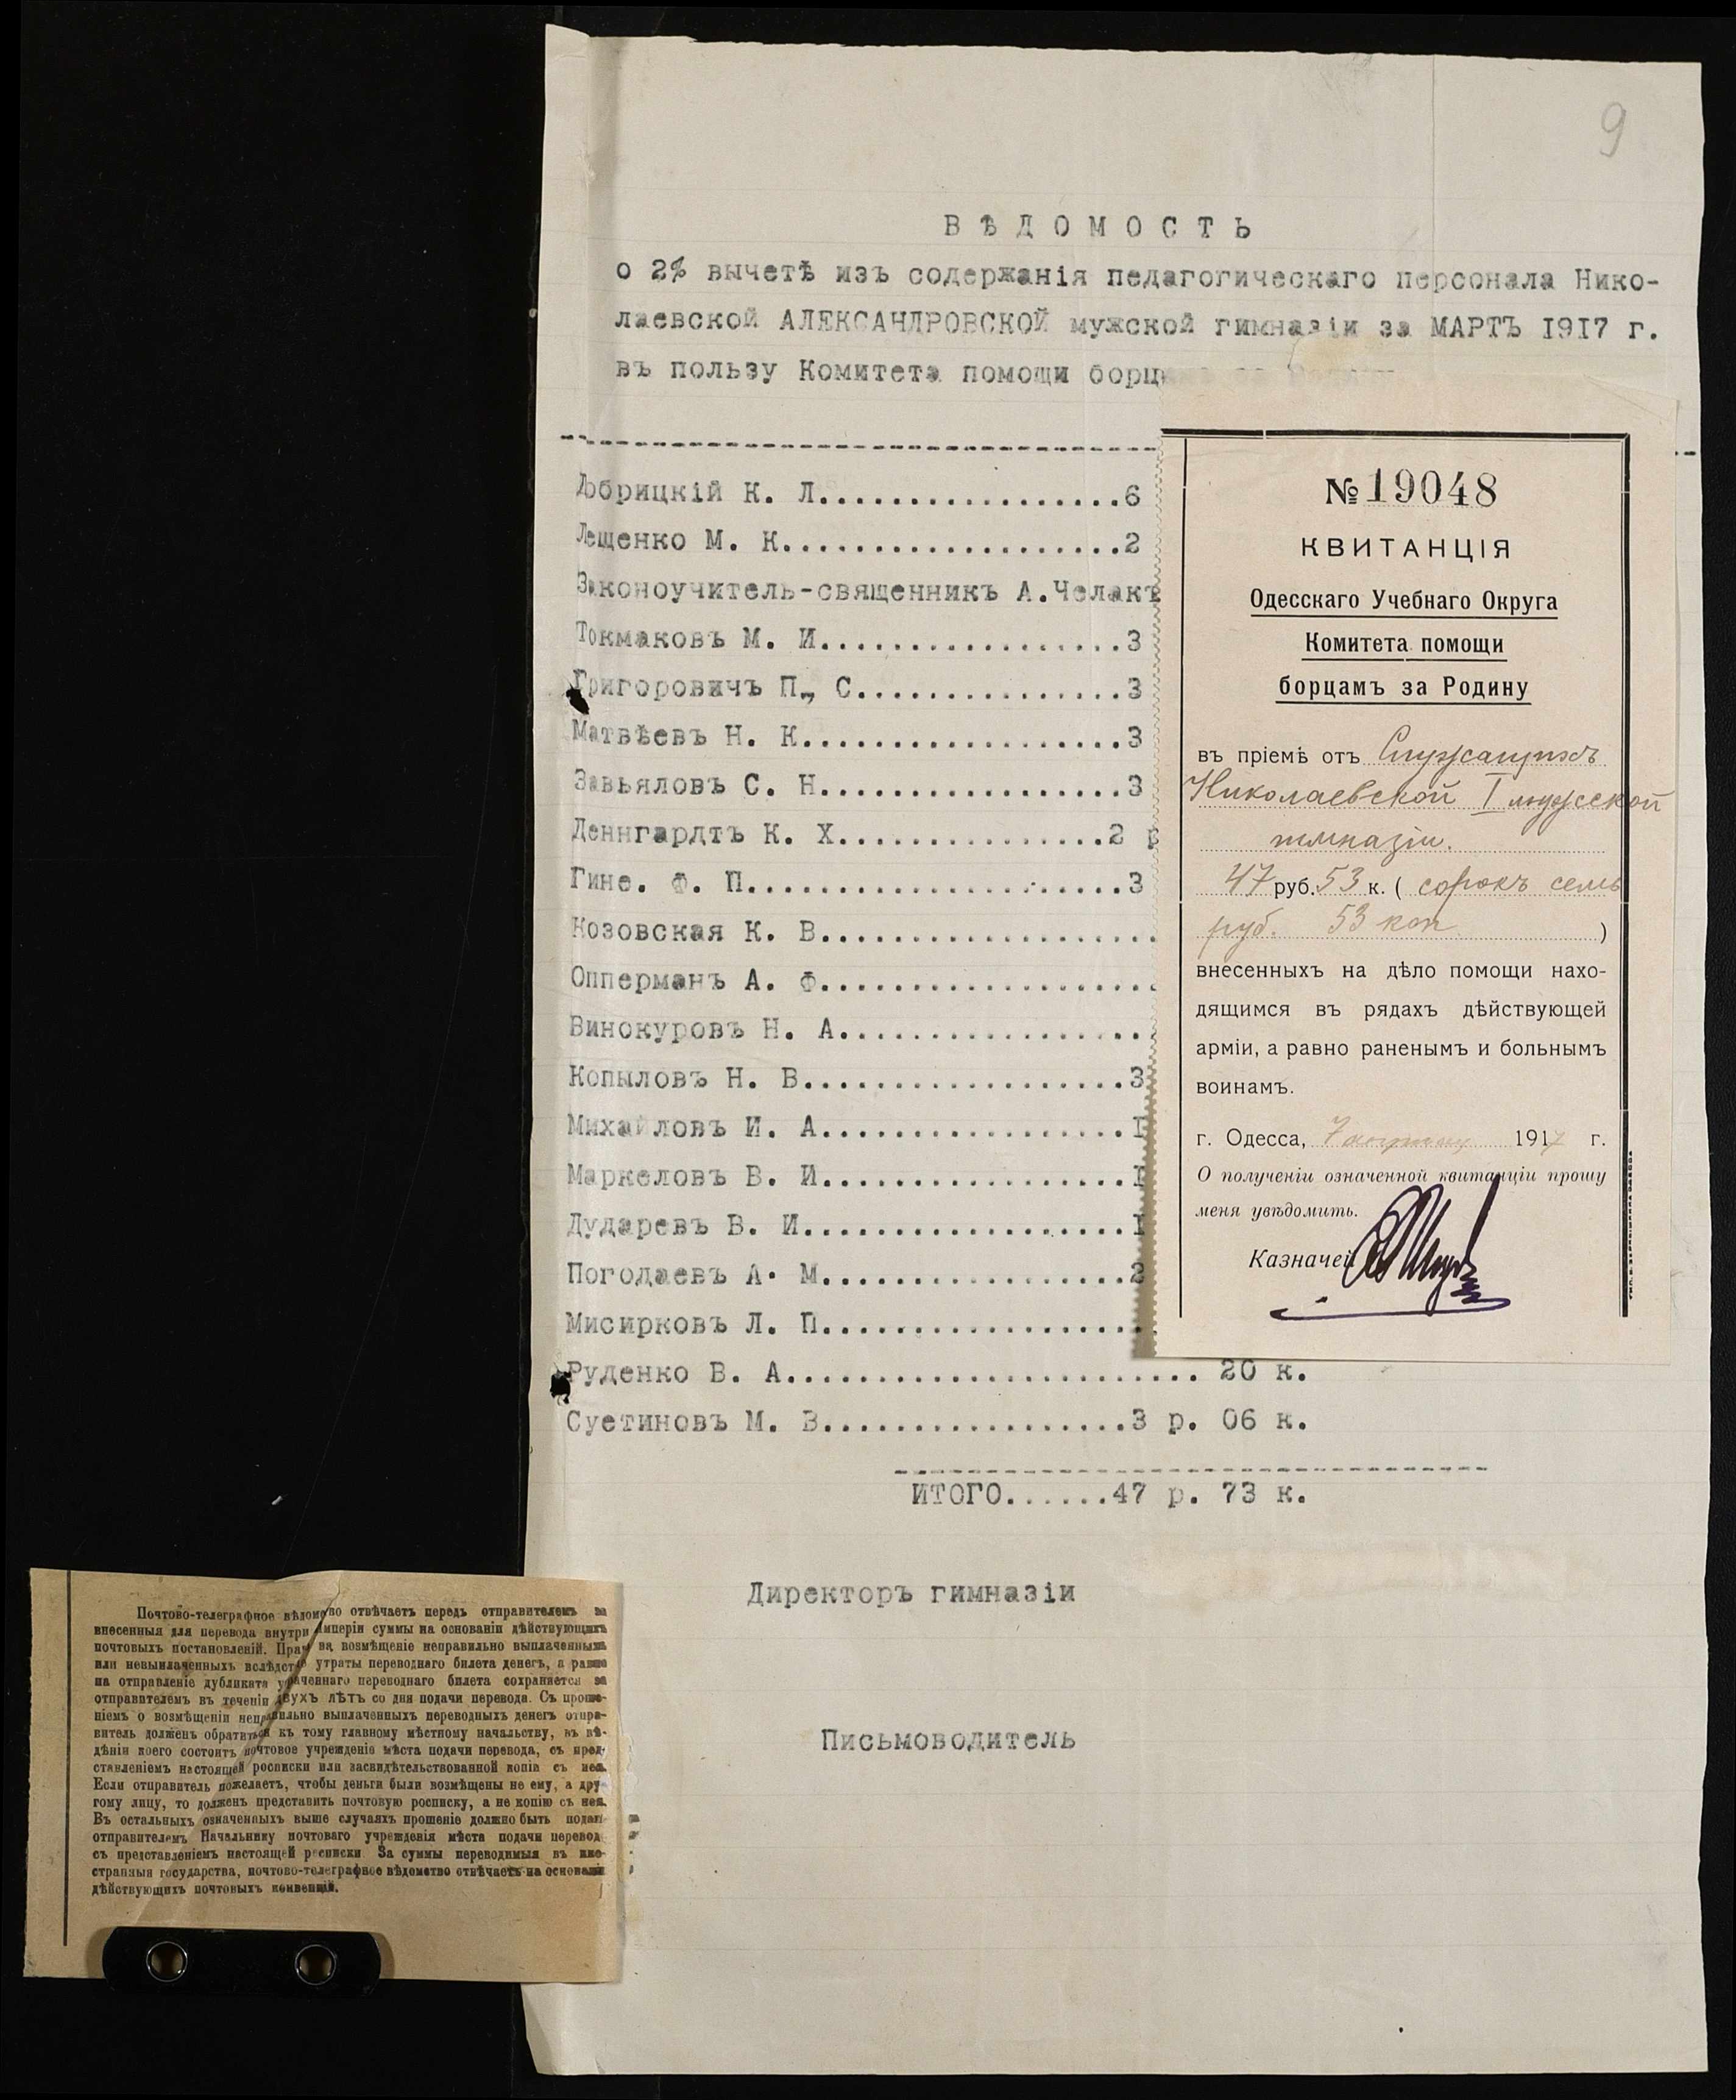 9
ВѢДОМОСТЬ
о 2% вычетѣ изъ содержанія педагогическаго персонала Нико-
лаевской АЛЕКСАНДРОВСКОЙ мужской гимназіи за МАРТЪ 1917 г.
въ пользу Комитета помощи борц
Добрицкій К. Л.................6
Лещенко М. К...................2
Законоучитель-священникъ А.Челак
Токмаковъ М. И.................3
Григоровичъ П., С...............3
Матвѣевъ Н. К..................3
Завьяловъ С. Н.................3
Деннгардтъ К. Х...............2 р
Гине. Ф. П.....................3
Козовская К. В...................
Опперманъ А. Ф...................
Винокуровъ Н. А..................
Копыловъ Н. В..................3
Михайловъ И. А.................I
Маркеловъ В. И.................I
Дударевъ В. И..................I
Погодаевъ А. М.................2
Мисирковъ Л. П..................
Руденко В. А....................... 20 к.
Суетиновъ М. В.................3 р. 06 к.
ИТОГО......47 р. 73 к.
Директоръ гимназіи
Письмоводитель
№ 19048
КВИТАНЦІЯ
Одесскаго Учебнаго Округа
Комитета помощи
борцамъ за Родину
въ пріемѣ отъ Служащихъ
Николаевской I мужской
гимназіи.
47 руб. 53 к. ( сорокъ семь
руб. 53 коп )
внесенныхъ на дѣло помощи нахо-
дящимся въ рядахъ дѣйствующей
арміи, а равно раненымъ и больнымъ
воинамъ.
г. Одесса, 7 1917 г.
О полученіи означенной квитанціи прошу
меня увѣдомить.
Казначей
Почтово-телеграфное вѣдомство отвѣчаетъ передъ отправителемъ за
внесенныя для перевода внутри Имперіи суммы на основаніи дѣйствующихъ
почтовыхъ постановленій. Право на возмѣщеніе неправильно выплаченныхъ
или невыплаченныхъ вслѣдствіе утраты переводнаго билета денегъ, а равно
на отправленіе дубликата утраченнаго переводнаго билета сохраняется за
отправителемъ въ теченіи двухъ лѣтъ со дня подачи перевода. Съ проше-
ніемъ о возмѣщеніи неправильно выплаченныхъ переводныхъ денегъ отпра-
витель долженъ обратиться къ тому главному мѣстному начальству, въ вѣ-
дѣніи коего состоитъ почтовое учрежденіе мѣста подачи перевода, съ пред-
ставленіемъ настоящей росписки или засвидѣтельствованной копіи съ нея.
Если отправитель пожелаетъ, чтобы деньги были возмѣщены не ему, а дру-
гому лицу, то долженъ представить почтовую росписку, а не копію съ нея.
Въ остальныхъ означенныхъ выше случаяхъ прошеніе должно быть подан
отправителемъ Начальнику почтоваго учрежденія мѣста подачи перевод
съ представленіемъ настоящей росписки. За суммы переводимыя въ ино-
странныя государства, почтово-телеграфное вѣдомство отвѣчаетъ на основаніи
дѣйствующихъ почтовыхъ конвенцій.